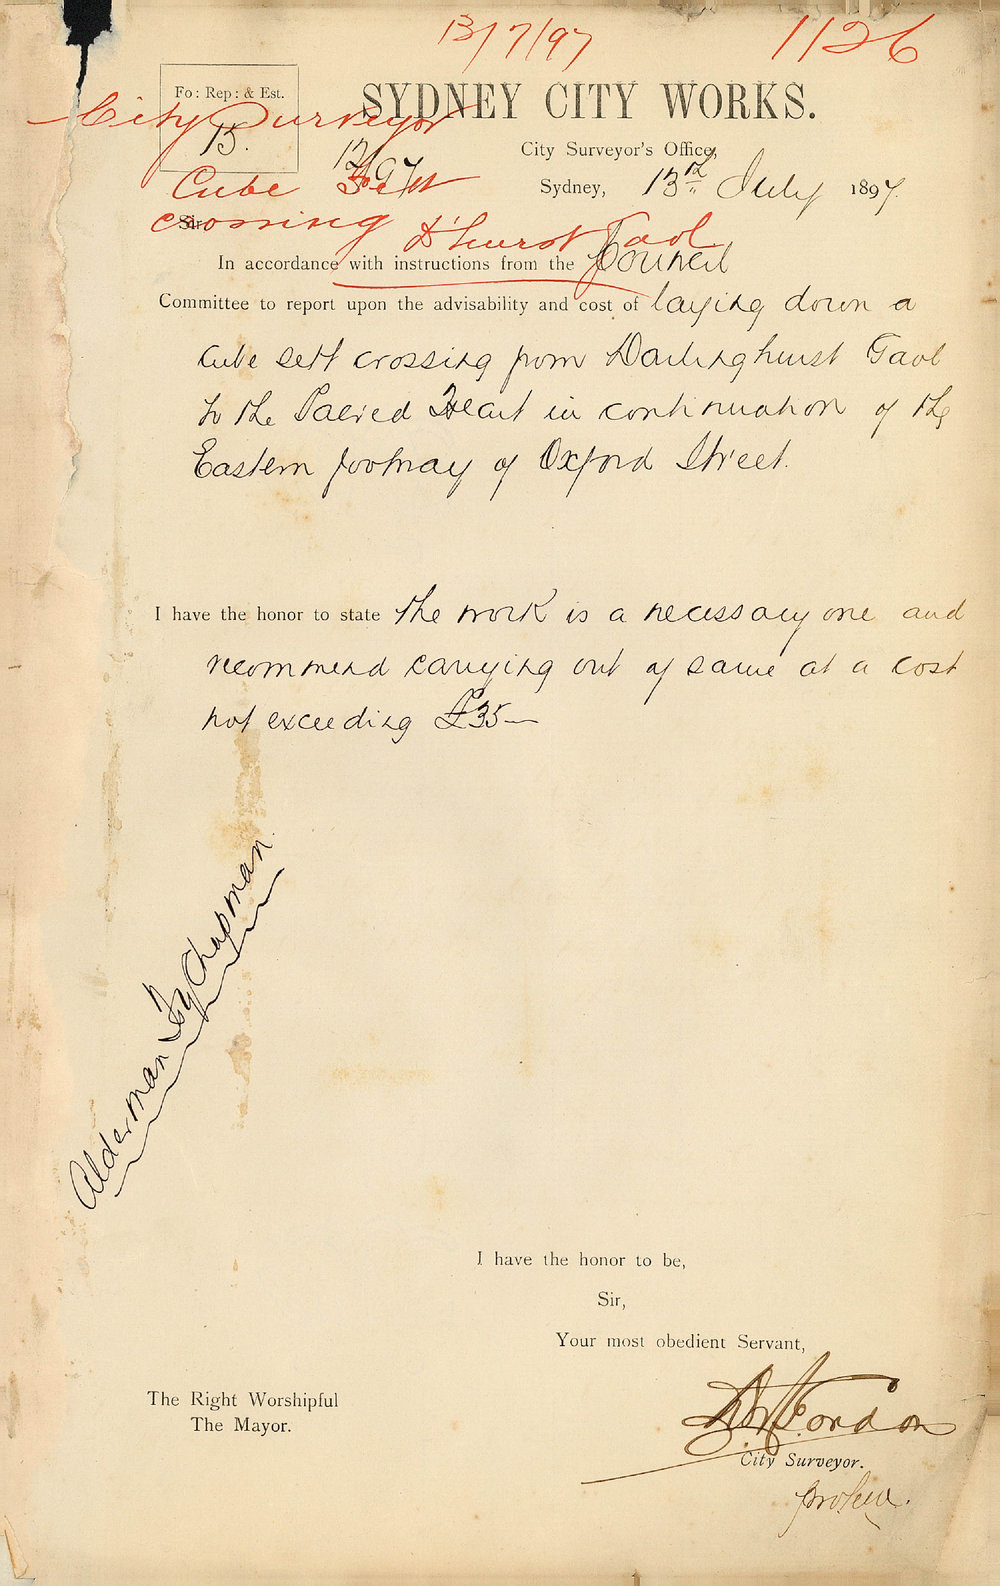 13/7/97
1126
Fo: Rep: & Est.
15.
12/97
City Surveyor
Cube Sett
crossing D'hurst Gaol
SYDNEY CITY WORKS.
City Surveyor's Office,
Sydney, 13th July 1897.
Sir
In accordance with instructions from the Council
Committee to report upon the advisability and cost of laying down a
cube sett crossing from Darlinghurst Gaol
to the Sacred Heart in continuation of the
Eastern footway of Oxford Street.
I have the honor to state the work is a necessary one and
recommend carrying out of same at a cost
not exceeding £35—
Alderman Chapman
I have the honor to be,
Sir,
Your most obedient Servant,
Gordon
City Surveyor.
pro tem.
The Right Worshipful
The Mayor.